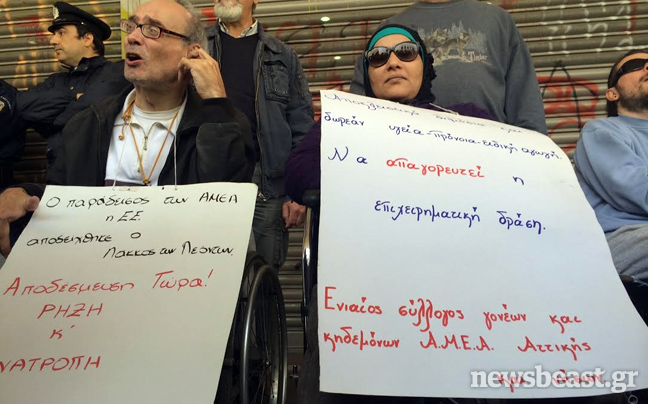 Ο παράδεισος των ΑΜΕΑ
η Ε.Ε.
αποδείχθηκε ο
Λάκκος των Λεόντων.
Αποδέσμευση Τώρα!
ΡΗΞΗ
κ'
ΝΑΤΡΟΠΗ
δωρεάν υγεία-πρόνοια-ειδική αγωγή.
Να απαγορευτεί η
επιχειρηματική δράση.
Ενιαίος σύλλογος γονέων και
κηδεμόνων Α.Μ.Ε.Α. Αττικής
newsbeast.gr